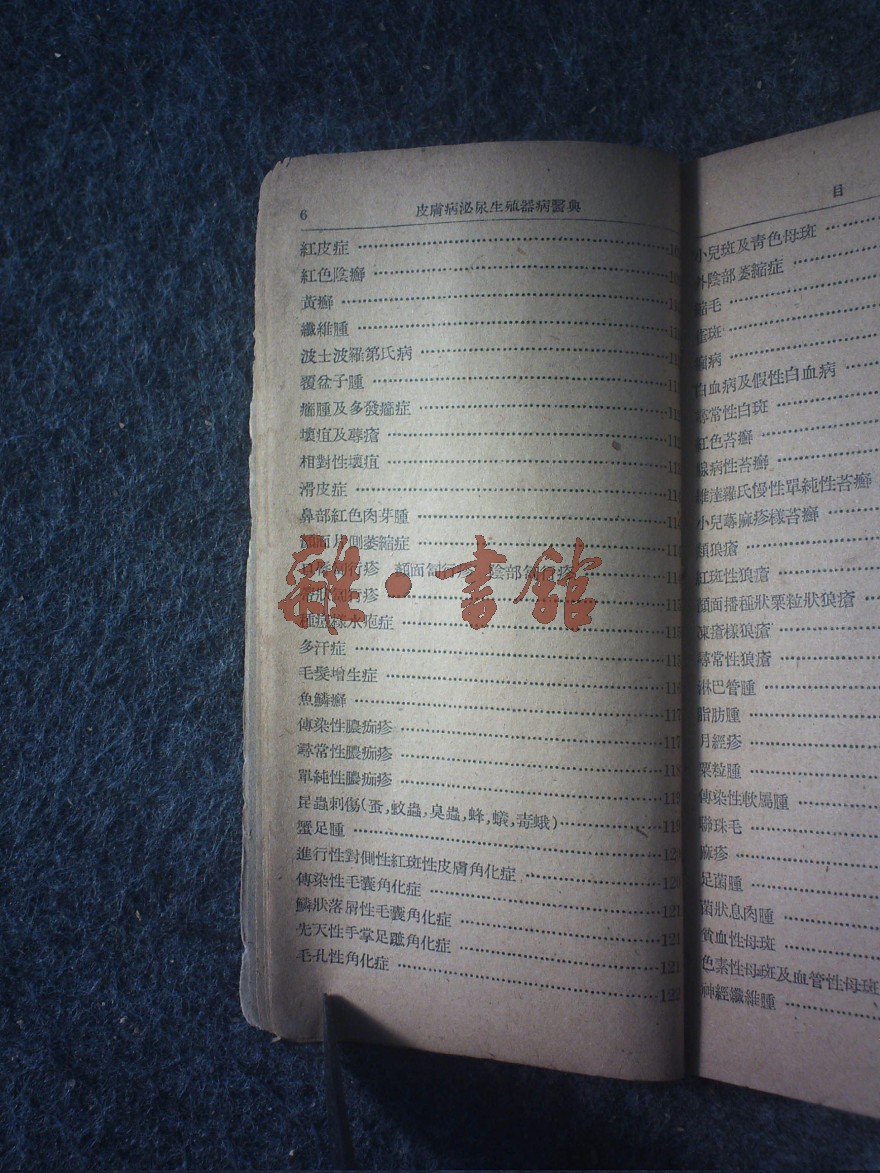 6 皮膚病泌尿生殖器病醫典
紅皮症
紅色陰癬
黃癬
纖維腫
波士波羅第氏病
覆盆子腫
癤腫及多發癤症
壞疽及蓐瘡
相對性壞疽
滑皮症
鼻部紅色肉芽腫
顏面片側萎縮症
口脣匐行疹 顏面匐行疹 陰部匐行疹
帶狀匐行疹
種痘樣水疱症
多汗症
毛髮增生症 116
魚鱗癬 117
傳染性膿痂疹 117
尋常性膿痂疹 118
單純性膿痂疹
昆蟲刺傷(蚤,蚊蟲,臭蟲,蜂,蟻,毒蛾)
蟹足腫
進行性對側性紅斑性皮膚角化症
傳染性毛囊角化症 121
鱗狀落屑性毛囊角化症 121
先天性手掌足蹠角化症 121
毛孔性角化症 122
雜·書館
目
小兒斑及青色母斑
外陰部萎縮症
縮毛
白血病及假性白血病
尋常性白斑
紅色苔癬
腺病性苔癬
維達羅氏慢性單純性苔癬
小兒蕁麻疹樣苔癬
類狼瘡
紅斑性狼瘡
顏面播種狀粟粒狀狼瘡
凍瘡樣狼瘡
尋常性狼瘡
淋巴管腫
脂肪腫
月經疹
粟粒腫
傳染性軟屬腫
聯珠毛
麻疹
足菌腫
菌狀息肉腫
貧血性母斑
色素性母斑及血管性母斑
神經纖維腫